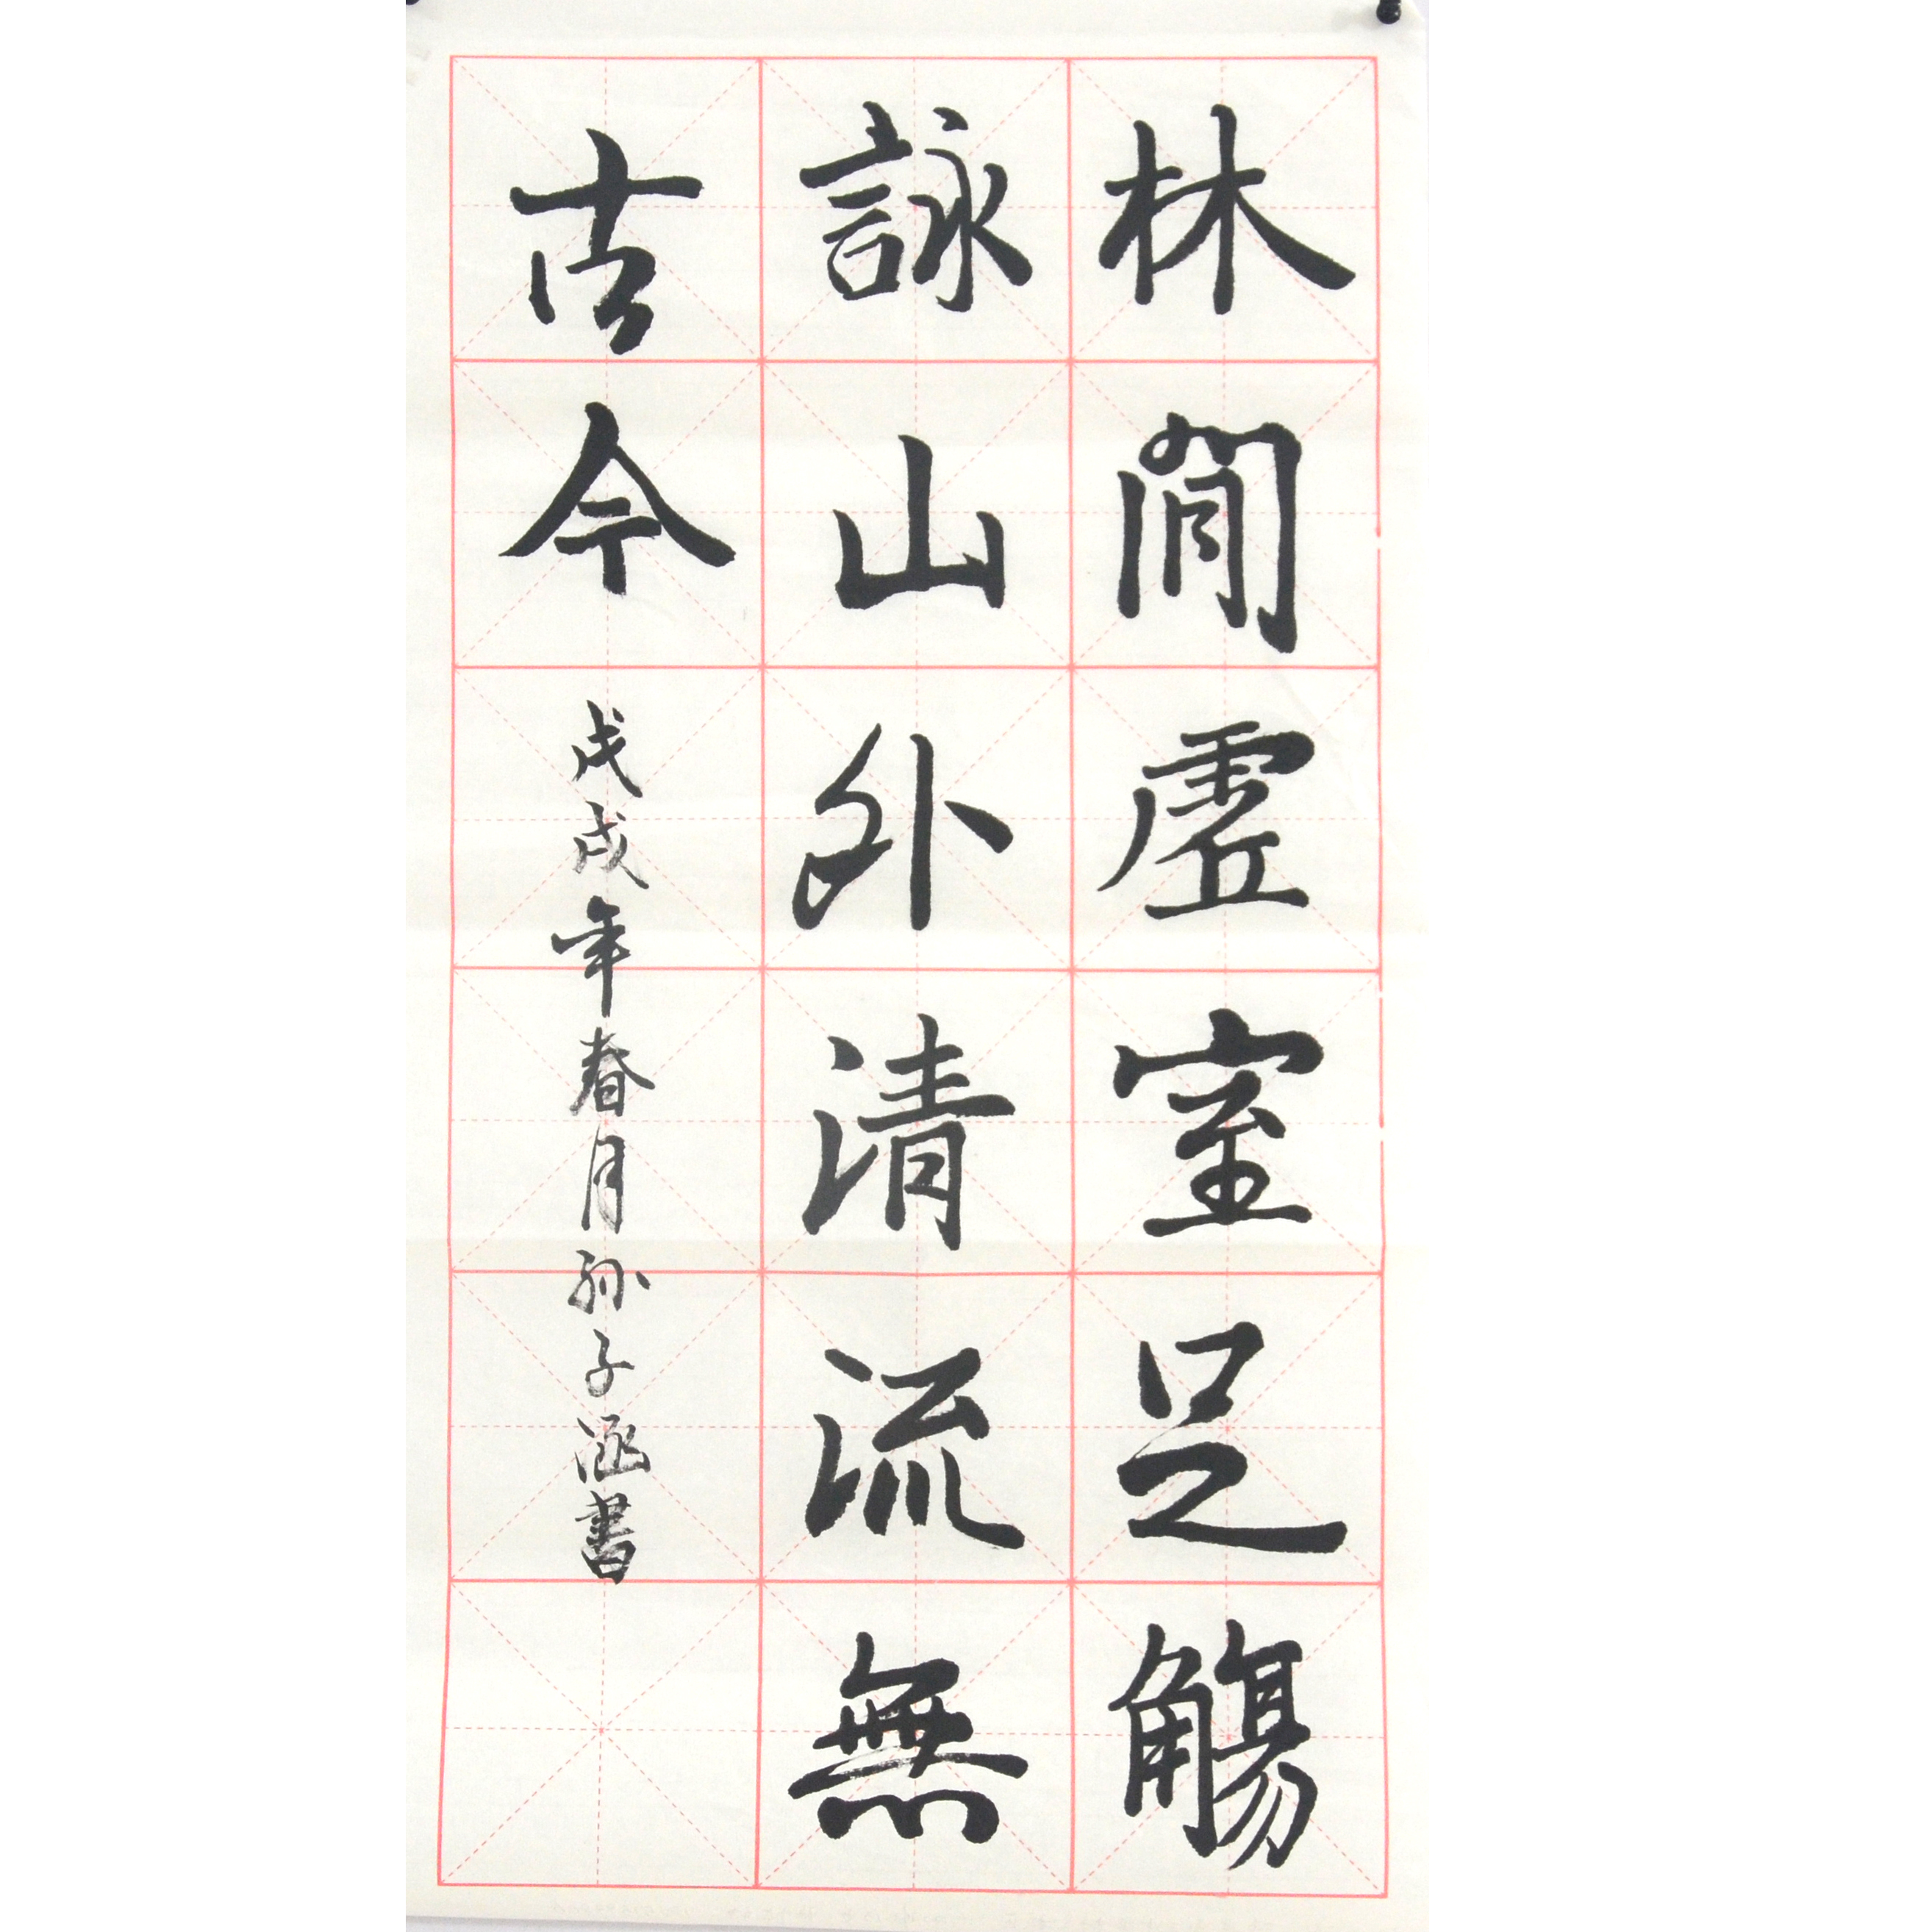 林間虛室足觴
詠山外清流無
古今
戊戌年春月孙子涵書